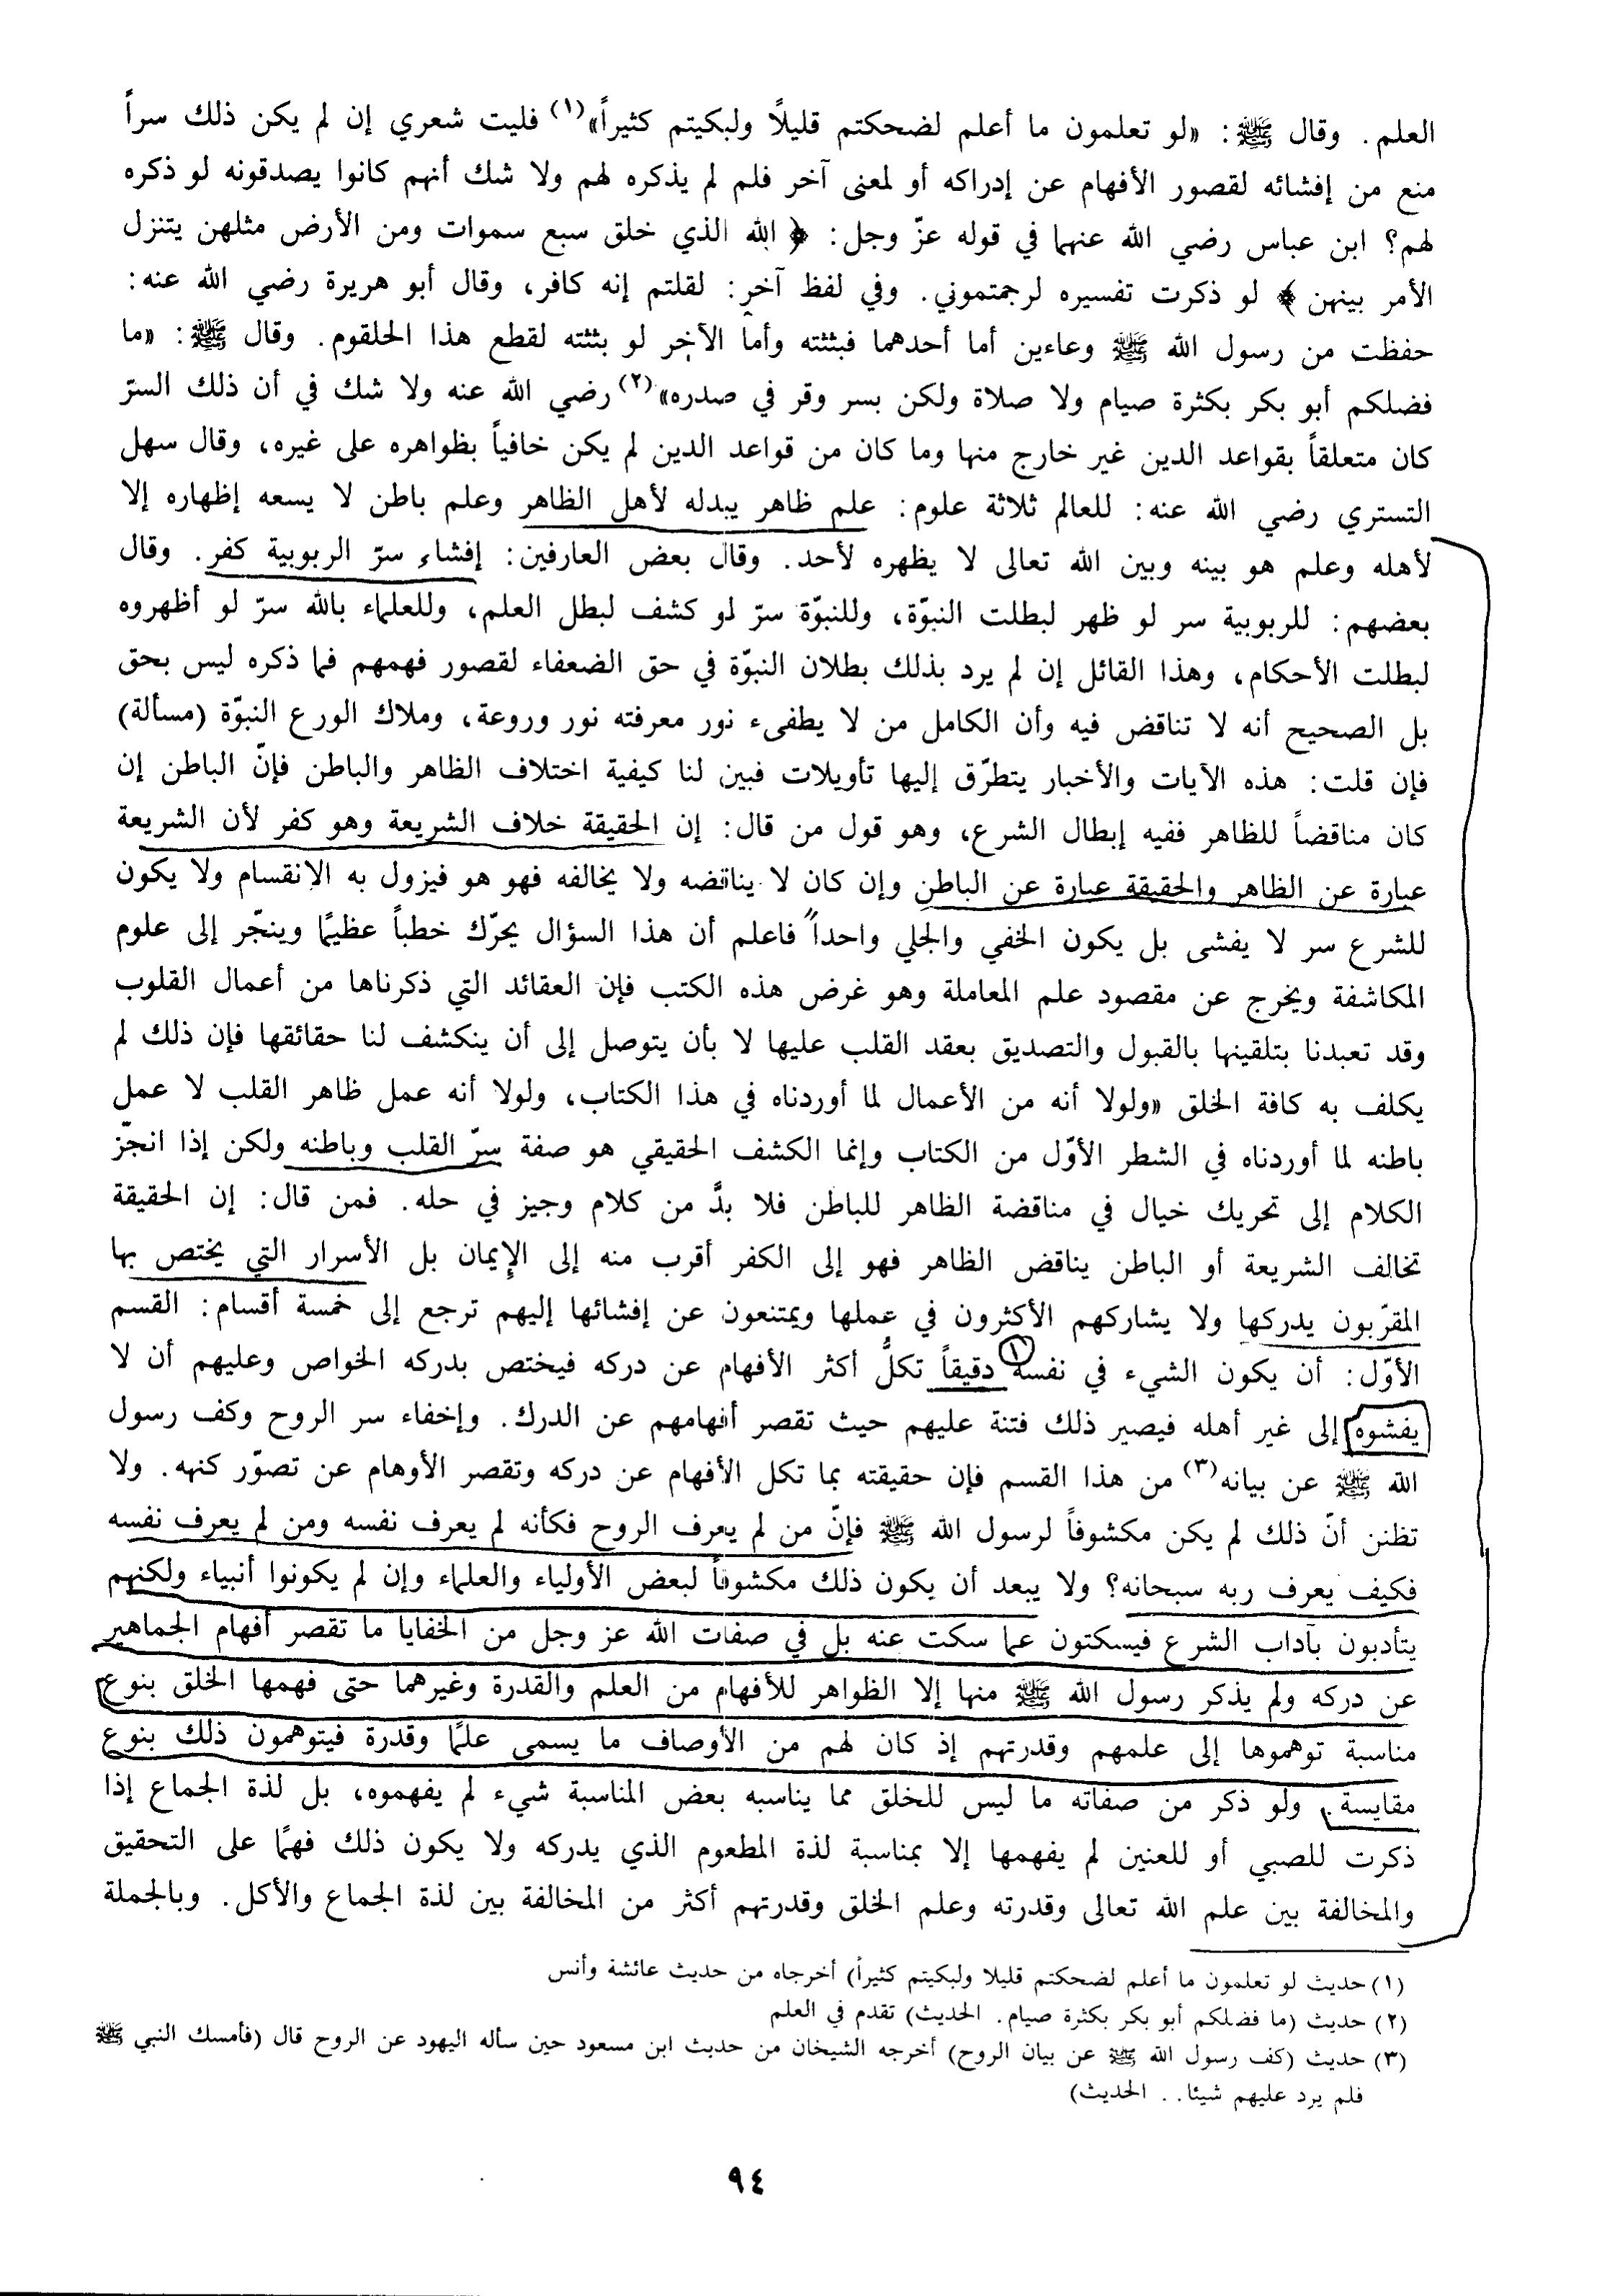 العلم. وقال ﷺ: «لو تعلمون ما أعلم لضحكتم قليلاً ولبكيتم كثيراً»(١) فليت شعري إن لم يكن ذلك سراً
منع من إفشائه لقصور الأفهام عن إدراكه أو لمعنى آخر فلم لم يذكره لهم ولا شك أنهم كانوا يصدقونه لو ذكره
لهم؟ ابن عباس رضي الله عنهما في قوله عزّ وجل: ﴿ الله الذي خلق سبع سموات ومن الأرض مثلهن يتنزل
الأمر بينهن ﴾ لو ذكرت تفسيره لرجمتموني. وفي لفظ آخر: لقلتم إنه كافر، وقال أبو هريرة رضي الله عنه:
حفظت من رسول الله ﷺ وعاءين أما أحدهما فبثثته وأما الآخر لو بثثته لقطع هذا الحلقوم. وقال ﷺ: «ما
فضلكم أبو بكر بكثرة صيام ولا صلاة ولكن بسر وقر في صدره»(٢) رضي الله عنه ولا شك في أن ذلك السرّ
كان متعلقاً بقواعد الدين غير خارج منها وما كان من قواعد الدين لم يكن خافياً بظواهره على غيره، وقال سهل
التستري رضي الله عنه: للعالم ثلاثة علوم: علم ظاهر يبدله لأهل الظاهر وعلم باطن لا يسعه إظهاره إلا
لأهله وعلم هو بينه وبين الله تعالى لا يظهره لأحد. وقال بعض العارفين: إفشاء سرّ الربوبية كفر. وقال
بعضهم: للربوبية سر لو ظهر لبطلت النبوّة، وللنبوّة سرّ لو كشف لبطل العلم، وللعلماء بالله سرّ لو أظهروه
لبطلت الأحكام، وهذا القائل إن لم يرد بذلك بطلان النبوّة في حق الضعفاء لقصور فهمهم فما ذكره ليس بحق
بل الصحيح أنه لا تناقض فيه وأن الكامل من لا يطفىء نور معرفته نور وروعة، وملاك الورع النبوّة (مسألة)
فإن قلت: هذه الآيات والأخبار يتطرّق إليها تأويلات فبين لنا كيفية اختلاف الظاهر والباطن فإنّ الباطن إن
كان مناقضاً للظاهر ففيه إبطال الشرع، وهو قول من قال: إن الحقيقة خلاف الشريعة وهو كفر لأن الشريعة
عبارة عن الظاهر والحقيقة عبارة عن الباطن وإن كان لا يناقضه ولا يخالفه فهو هو فيزول به الإنقسام ولا يكون
للشرع سر لا يفشى بل يكون الخفي والجلي واحداً فاعلم أن هذا السؤال يحرّك خطباً عظيمًا وينجّر إلى علوم
المكاشفة ويخرج عن مقصود علم المعاملة وهو غرض هذه الكتب فإن العقائد التي ذكرناها من أعمال القلوب
وقد تعبدنا بتلقينها بالقبول والتصديق بعقد القلب عليها لا بأن يتوصل إلى أن ينكشف لنا حقائقها فإن ذلك لم
يكلف به كافة الخلق «ولولا أنه من الأعمال لما أوردناه في هذا الكتاب، ولولا أنه عمل ظاهر القلب لا عمل
باطنه لما أوردناه في الشطر الأوّل من الكتاب وإنما الكشف الحقيقي هو صفة سرّ القلب وباطنه ولكن إذا انجّز
الكلام إلى تحريك خيال في مناقضة الظاهر للباطن فلا بدَّ من كلام وجيز في حله. فمن قال: إن الحقيقة
تخالف الشريعة أو الباطن يناقض الظاهر فهو إلى الكفر أقرب منه إلى الإيمان بل الأسرار التي يختص بها
المقرّبون يدركها ولا يشاركهم الأكثرون في عملها ويمتنعون عن إفشائها إليهم ترجع إلى خمسة أقسام: القسم
الأوّل: أن يكون الشيء في نفسه ١ دقيقاً تكلُّ أكثر الأفهام عن دركه فيختص بدركه الخواص وعليهم أن لا
يفشوه إلى غير أهله فيصير ذلك فتنة عليهم حيث تقصر أفهامهم عن الدرك. وإخفاء سر الروح وكف رسول
الله ﷺ عن بيانه(٣) من هذا القسم فإن حقيقته بما تكل الأفهام عن دركه وتقصر الأوهام عن تصوّر كنهه. ولا
تظنن أنّ ذلك لم يكن مكشوفاً لرسول الله ﷺ فإنّ من لم يعرف الروح فكأنه لم يعرف نفسه ومن لم يعرف نفسه
فكيف يعرف ربه سبحانه؟ ولا يبعد أن يكون ذلك مكشوفاً لبعض الأولياء والعلماء وإن لم يكونوا أنبياء ولكنهم
يتأدبون بآداب الشرع فيسكتون عما سكت عنه بل في صفات الله عز وجل من الخفايا ما تقصر أفهام الجماهير
عن دركه ولم يذكر رسول الله ﷺ منها إلا الظواهر للأفهام من العلم والقدرة وغيرهما حتى فهمها الخلق بنوع
مناسبة توهموها إلى علمهم وقدرتهم إذ كان لهم من الأوصاف ما يسمى علمًا وقدرة فيتوهمون ذلك بنوع
مقايسة. ولو ذكر من صفاته ما ليس للخلق مما يناسبه بعض المناسبة شيء لم يفهموه، بل لذة الجماع إذا
ذكرت للصبي أو للعنين لم يفهمها إلا بمناسبة لذة المطعوم الذي يدركه ولا يكون ذلك فهمًا على التحقيق
والمخالفة بين علم الله تعالى وقدرته وعلم الخلق وقدرتهم أكثر من المخالفة بين لذة الجماع والأكل. وبالجملة
(١) حديث لو تعلمون ما أعلم لضحكتم قليلا ولبكيتم كثيراً) أخرجاه من حديث عائشة وأنس
(٢) حديث (ما فضلكم أبو بكر بكثرة صيام. الحديث) تقدم في العلم
(٣) حديث (كف رسول الله ﷺ عن بيان الروح) أخرجه الشيخان من حديث ابن مسعود حين سأله اليهود عن الروح قال (فأمسك النبي ﷺ
فلم يرد عليهم شيئا.. الحديث)
٩٤